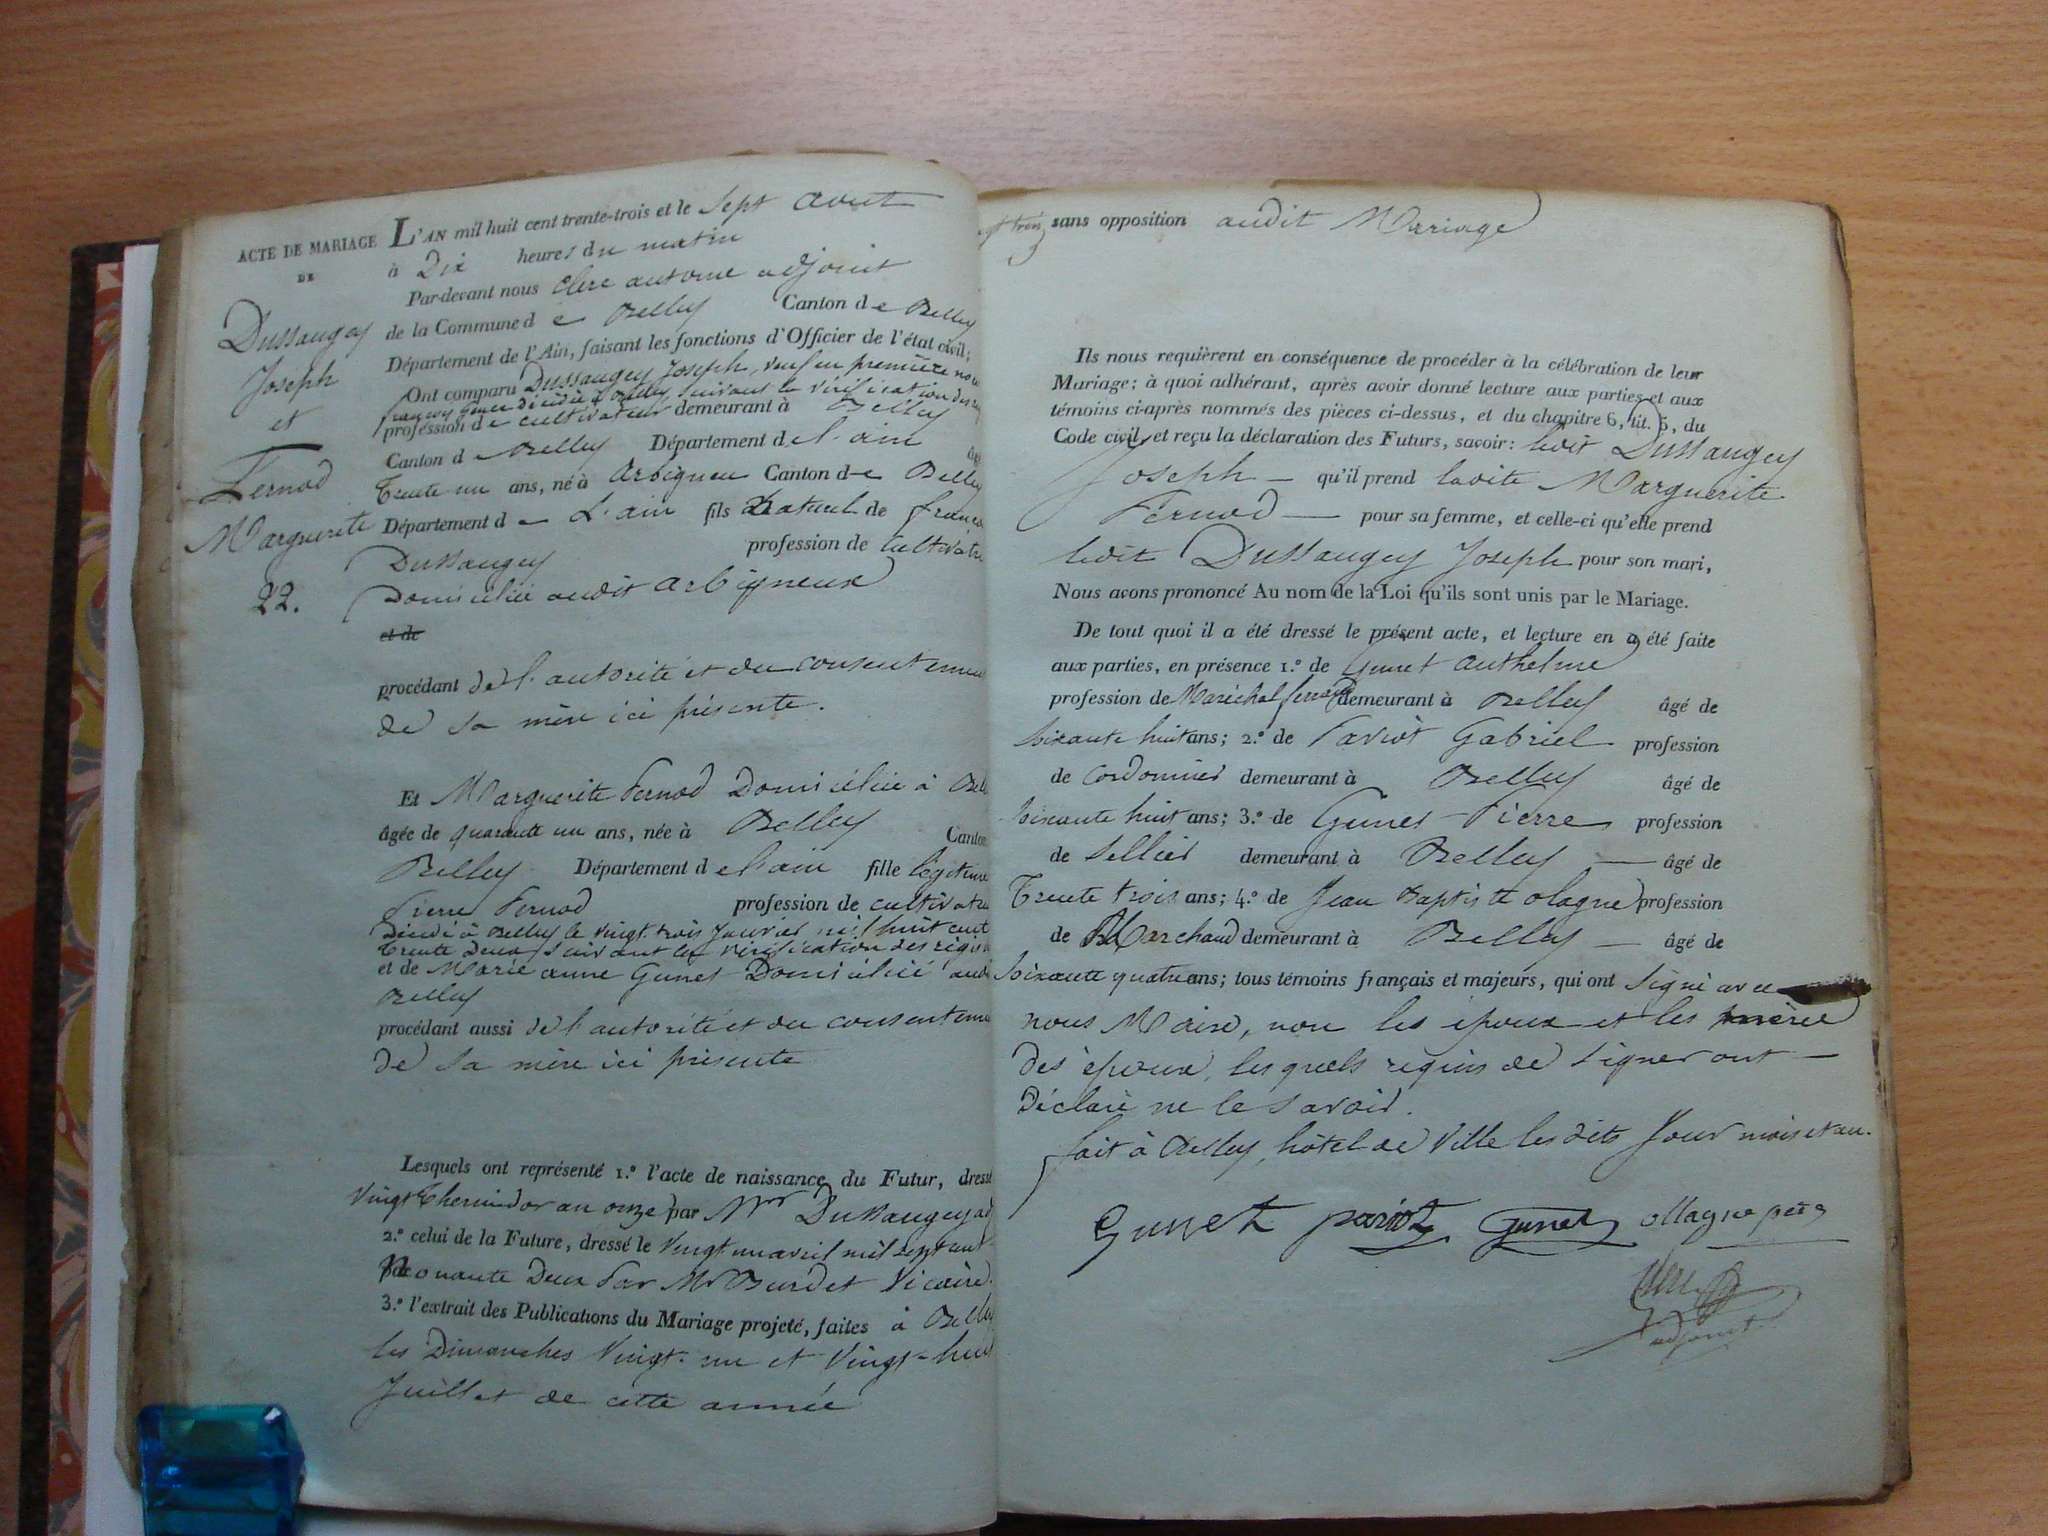 ACTE DE MARIAGE
DE
Dussaugey
Joseph
et
Pernod
Marguerite
22.
L'AN mil huit cent trente-trois et le sept aout
à Dix heures du matin
Par-devant nous Clerc antoine adjoint
de la Commune de Belley Canton de Belley
Département de l'Ain, faisant les fonctions d'Officier de l'état civil;
Ont comparu Dussaugey Joseph, veuf en première
décédée à Belley suivant la vérification des
profession de cultivateur demeurant à Belley
Canton de Belley Département de l'ain
trente un ans, né à Arbigneu Canton de Belley
Département de L'ain fils naturel de
Dussaugey profession de
Domicilié audit Arbigneux
et de
procédant de l'autorité et du
de sa mère ici présente.
Et Marguerite Pernod Domiciliée à
âgée de quarante un ans, née à Belley Canton
Belley Département de l'ain fille légitime
Pierre Pernod profession de
Décédé à Belley le vingt trois Janvier mil huit cent
trente Deux suivant la vérification des
et de Marie anne Gunet Domiciliée
Belley
procédant aussi de l'autorité et du
de sa mère ici présente
Lesquels ont représenté 1.º l'acte de naissance du Futur,
Vingt thermidor an onze par Mr Dussaugey
2.º celui de la Future, dressé le vingt un avril mil sept cent
Deux Par Mr Burdet Vicaire.
3.º l'extrait des Publications du Mariage projeté, faites à Belley
les Dimanches Vingt-un et Vingt-huit
Juillet de cette année
sans opposition audit Mariage
Ils nous requièrent en conséquence de procéder à la célébration de leur
Mariage; à quoi adhérant, après avoir donné lecture aux parties et aux
témoins ci-après nommés des pièces ci-dessus, et du chapitre 6, tit. 5, du
Code civil, et reçu la déclaration des Futurs, savoir: ledit Dussaugey
Joseph — qu'il prend ladite Marguerite
Pernod — pour sa femme, et celle-ci qu'elle prend
ledit Dussaugey Joseph pour son mari,
Nous avons prononcé Au nom de la Loi qu'ils sont unis par le Mariage.
De tout quoi il a été dressé le présent acte, et lecture en a été faite
aux parties, en présence 1.º de Gunet Anthelme
profession de Maréchal ferrant demeurant à Belley âgé de
soixante huit ans; 2.º de Pariot Gabriel profession
de Cordonnier demeurant à Belley âgé de
soixante huit ans; 3.º de Gunet Pierre profession
de Sellier demeurant à Belley — âgé de
trente trois ans; 4.º de Jean Baptiste olagne profession
de Marchand demeurant à Belley — âgé de
soixante quatre ans; tous témoins français et majeurs, qui ont signé avec
nous Maire, non les époux et les mères
des époux, lesquels requis de signer ont —
Déclaré ne le savoir.
fait à Belley, hôtel de Ville les dits Jour mois et an.
Gunet pariot Gunet ollagne père
Clerc
adjoint